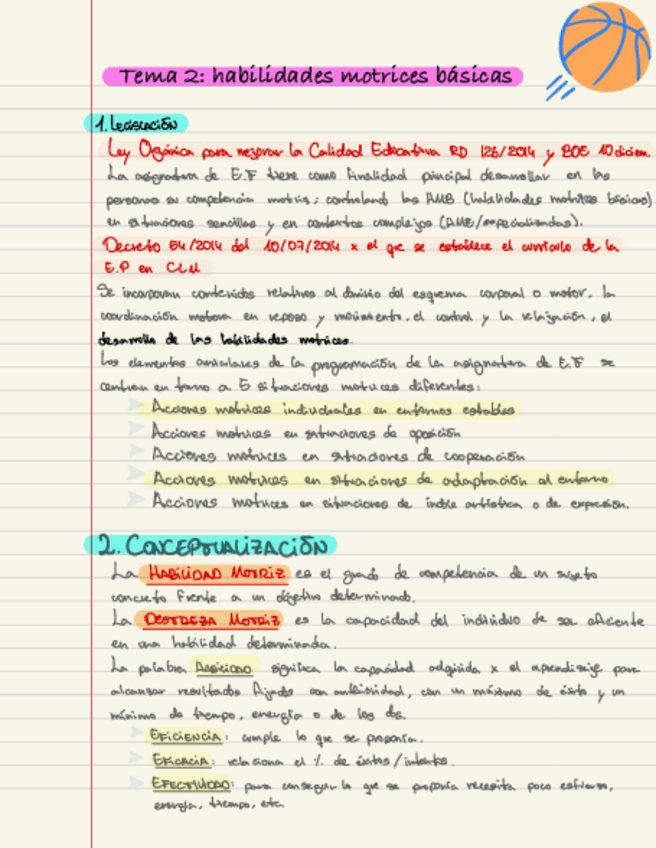 Tema 2: habilidades motrices básicas
1. Legislación
Ley Orgánica para mejorar la Calidad Educativa RD 126/2014 y BOE 10 diciem
La asignatura de E.F tiene como finalidad principal desarrollar en las
personas su competencia motriz; controlando las HMB (habilidades motrices básicas)
en situaciones sencillas y en contextos complejos (AME/especializadas).
Decreto 54/2014 del 10/07/2014 x el qe se establece el currículo de la
E.P en CLM
Se incorporan contenidos relativos al dominio del esquema corporal o motor, la
coordinación motora en reposo y movimiento, el control y la relajación, el
desarrollo de las habilidades motrices.
Los elementos curriculares de la programación de la asignatura de E.F se
centran en torno a 5 situaciones motrices diferentes:
Acciones motrices individuales en entornos estables
Acciones motrices en situaciones de oposición
Acciones motrices en situaciones de cooperación
Acciones motrices en situaciones de adaptación al entorno
Acciones motrices en situaciones de índole artística o de expresión.
2. CONCEPTUALIZACIÓN
La HABILIDAD MOTRIZ es el grado de competencia de un sujeto
concreto frente a un objetivo determinado.
La DESTREZA MOTRIZ es la capacidad del individuo de ser eficiente
en una habilidad determinada.
La palabra HABILIDAD significa la capacidad adqirida x el aprendizaje para
alcanzar resultados fijados con anterioridad, con un máximo de éxito y un
mínimo de tiempo, energía o de los dos.
EFICIENCIA: cumple lo que se proponía.
EFICACIA: relaciona el % de éxitos/intentos.
EFECTIVIDAD: para conseguir lo qe se proponía necesita poco esfuerzo,
energía, tiempo, etc.